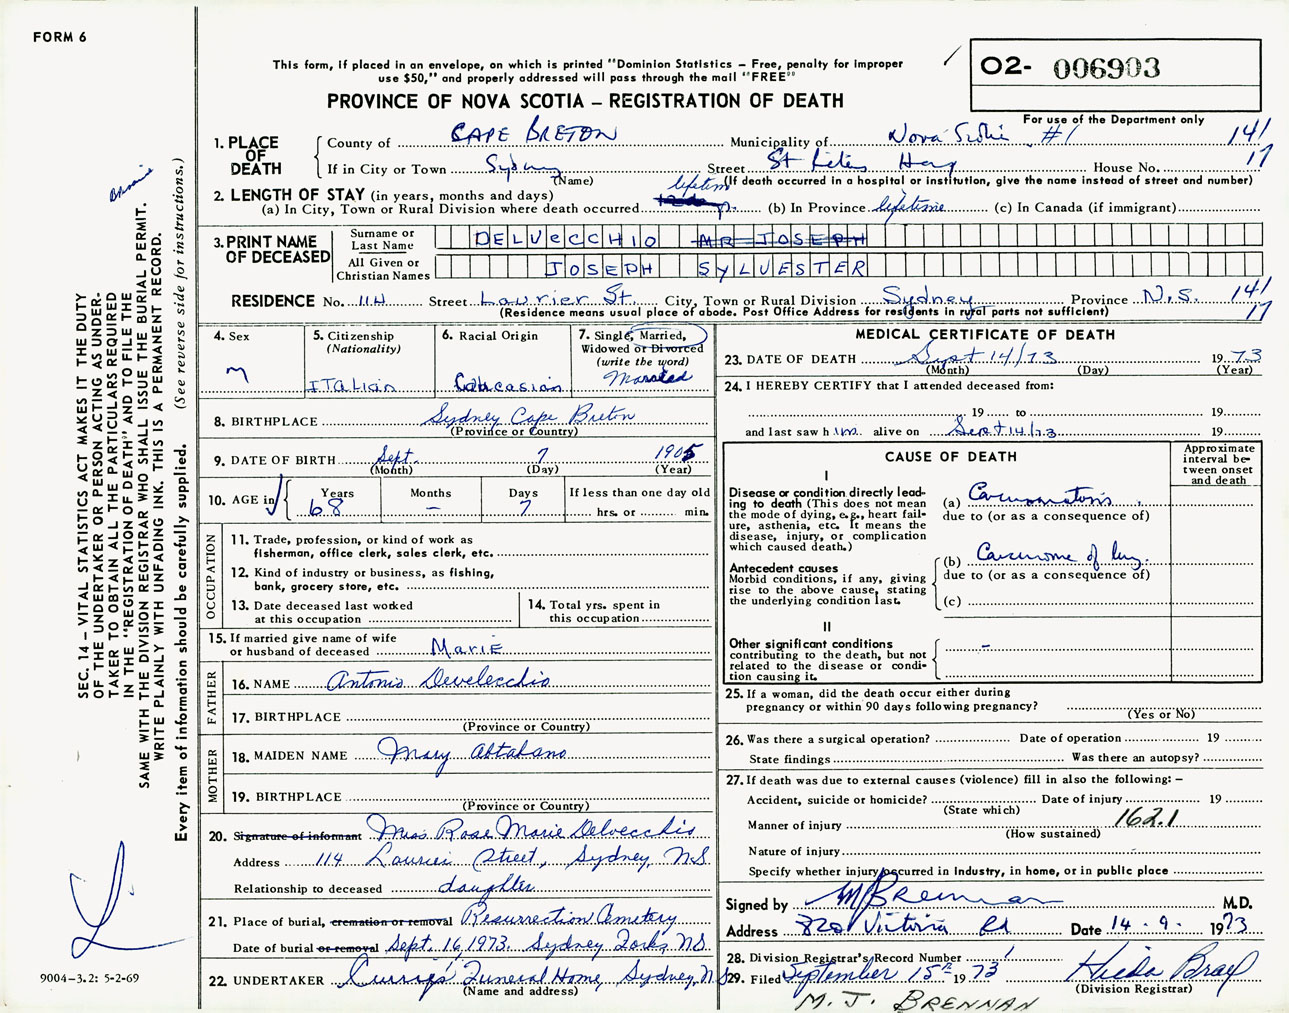 FORM 6
This form, if placed in an envelope, on which is printed "Dominion Statistics – Free, penalty for improper
use $50," and properly addressed will pass through the mail "FREE"
O2- 006903
PROVINCE OF NOVA SCOTIA – REGISTRATION OF DEATH
For use of the Department only
1. PLACE OF DEATH
County of CAPE BRETON Municipality of Nova Scotia #1 141
If in City or Town Sydney Street St Hosp House No. 17
(Name) (If death occurred in a hospital or institution, give the name instead of street and number)
2. LENGTH OF STAY (in years, months and days) lifetime
(a) In City, Town or Rural Division where death occurred (b) In Province lifetime (c) In Canada (if immigrant)
3. PRINT NAME OF DECEASED
Surname or Last Name DELVECCHIO MR JOSEPH
All Given or Christian Names JOSEPH SYLVESTER
RESIDENCE No. 114 Street Laurier St. City, Town or Rural Division Sydney Province N.S. 141
(Residence means usual place of abode. Post Office Address for residents in rural parts not sufficient) 17
4. Sex M
5. Citizenship (Nationality) ITALIAN
6. Racial Origin Caucasian
7. Single, Married, Widowed or Divorced (write the word) Married
8. BIRTHPLACE Sydney Cape Breton
(Province or Country)
9. DATE OF BIRTH Sept. 7 1905
(Month) (Day) (Year)
10. AGE in Years 68 Months – Days 7 If less than one day old hrs. or min.
OCCUPATION
11. Trade, profession, or kind of work as
fisherman, office clerk, sales clerk, etc.
12. Kind of industry or business, as fishing,
bank, grocery store, etc.
13. Date deceased last worked
at this occupation
14. Total yrs. spent in
this occupation
15. If married give name of wife
or husband of deceased MARIE
FATHER
16. NAME Antonio Develecchio
17. BIRTHPLACE
(Province or Country)
MOTHER
18. MAIDEN NAME Mary
19. BIRTHPLACE
(Province or Country)
20. Signature of informant Miss Rose Marie Delvecchio
Address 114 Laurier Street, Sydney, N.S.
Relationship to deceased daughter
21. Place of burial, cremation or removal Resurrection Cemetery
Date of burial or removal Sept. 16, 1973. Sydney Forks N.S.
22. UNDERTAKER Curry's Funeral Home, Sydney, N.S.
(Name and address)
MEDICAL CERTIFICATE OF DEATH
23. DATE OF DEATH Sept 14/73 1973
(Month) (Day) (Year)
24. I HEREBY CERTIFY that I attended deceased from:
19 to 19
and last saw him alive on Sept 14/73 19
CAUSE OF DEATH
Approximate
interval be-
tween onset
and death
I
Disease or condition directly lead-
ing to death (This does not mean
the mode of dying, e.g., heart fail-
ure, asthenia, etc. It means the
disease, injury, or complication
which caused death.)
(a) Carcinomatosis
due to (or as a consequence of)
Antecedent causes
Morbid conditions, if any, giving
rise to the above cause, stating
the underlying condition last.
(b) Carcinoma of lung.
due to (or as a consequence of)
(c)
II
Other significant conditions
contributing to the death, but not
related to the disease or condi-
tion causing it.
–
25. If a woman, did the death occur either during
pregnancy or within 90 days following pregnancy?
(Yes or No)
26. Was there a surgical operation? Date of operation 19
State findings Was there an autopsy?
27. If death was due to external causes (violence) fill in also the following: –
Accident, suicide or homicide? Date of injury 19
(State which)
Manner of injury 162.1
(How sustained)
Nature of injury
Specify whether injury occurred in industry, in home, or in public place
Signed by M J Brennan M.D.
Address 820 Victoria Rd Date 14 . 9. 1973
28. Division Registrar's Record Number
29. Filed September 15th 1973 Hilda Bray
(Division Registrar)
M. J. BRENNAN
SEC. 14 – VITAL STATISTICS ACT MAKES IT THE DUTY
OF THE UNDERTAKER OR PERSON ACTING AS UNDER-
TAKER TO OBTAIN ALL THE PARTICULARS REQUIRED
IN THE "REGISTRATION OF DEATH" AND TO FILE THE
SAME WITH THE DIVISION REGISTRAR WHO SHALL ISSUE THE BURIAL PERMIT.
WRITE PLAINLY WITH UNFADING INK. THIS IS A PERMANENT RECORD.
Every item of information should be carefully supplied. (See reverse side for instructions.)
9004–3.2: 5-2-69